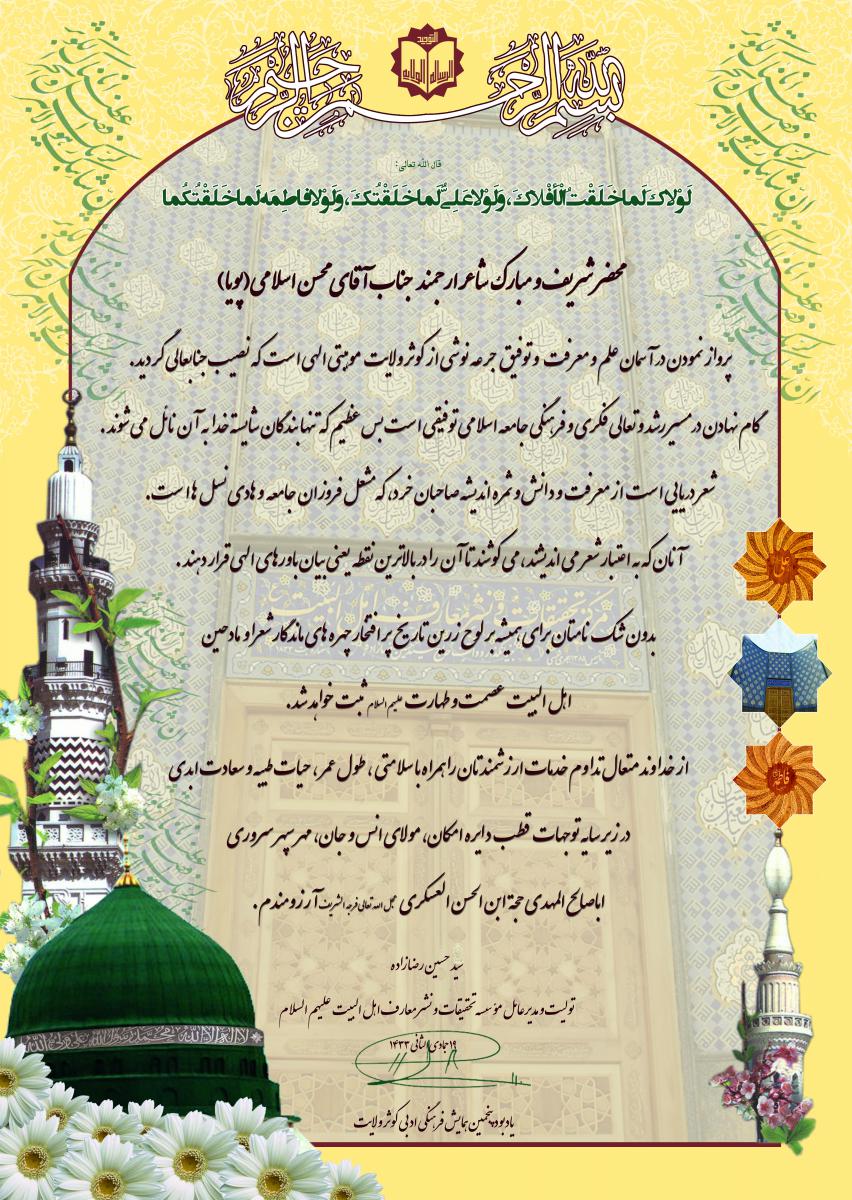 بسم الله الرحمن الرحیم
التوحید
الرساله الولایه
قال الله تعالی:
لَوْلاكَ لَما خَلَقْتُ الْأَفْلاكَ، وَلَوْلا عَلِيٌّ لَما خَلَقْتُكَ، وَلَوْلا فاطِمَه لَما خَلَقْتُكُما
محضر شریف و مبارک شاعر ارجمند جناب آقای محسن اسلامی (پویا)
پرواز نمودن در آسمان علم و معرفت و توفیق جرعه نوشی از کوثر ولایت موهبتی الهی است که نصیب جنابعالی گردید.
گام نهادن در مسیر رشد و تعالی فکری و فرهنگی جامعه اسلامی توفیقی است بس عظیم که تنها بندگان شایسته خدا به آن نائل می شوند.
شعر دریایی است از معرفت و دانش و ثمره اندیشه صاحبان خرد، که مشعل فروزان جامعه و هادی نسل ها است.
آنان که به اعتبار شعر می اندیشند، می کوشند تا آن را در بالاترین نقطه یعنی بیان باورهای الهی قرار دهند.
بدون شک نامتان برای همیشه بر لوح زرین تاریخ پر افتخار چهره های ماندگار شعرا و مادحین
اهل البیت عصمت و طهارت علیهم السلام ثبت خواهد شد.
از خداوند متعال تداوم خدمات ارزشمندتان را همراه با سلامتی، طول عمر، حیات طیبه و سعادت ابدی
در زیر سایه توجهات قطب دایره امکان، مولای انس و جان، مهر سپهر سروری
اباصالح المهدی حجة ابن الحسن العسکری عجل الله تعالی فرجه الشریف آرزومندم.
سید حسین رضازاده
تولیت و مدیر عامل مؤسسه تحقیقات و نشر معارف اهل البیت علیهم السلام
۱۹ جمادی الثانی ۱۴۳۳
یادبود پنجمین همایش فرهنگی ادبی کوثر ولایت
علی
فاطمة